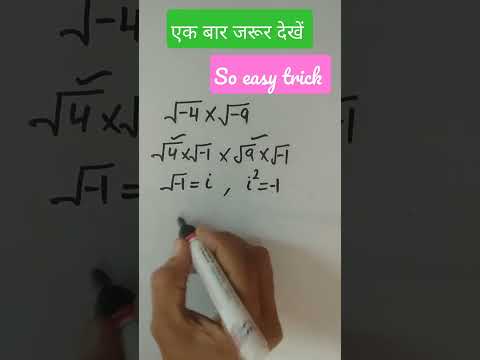 एक बार जरूर देखें
So easy trick
√-4 × √-9
√4 × √-1 × √9 × √-1
√-1 = i , i² = -1